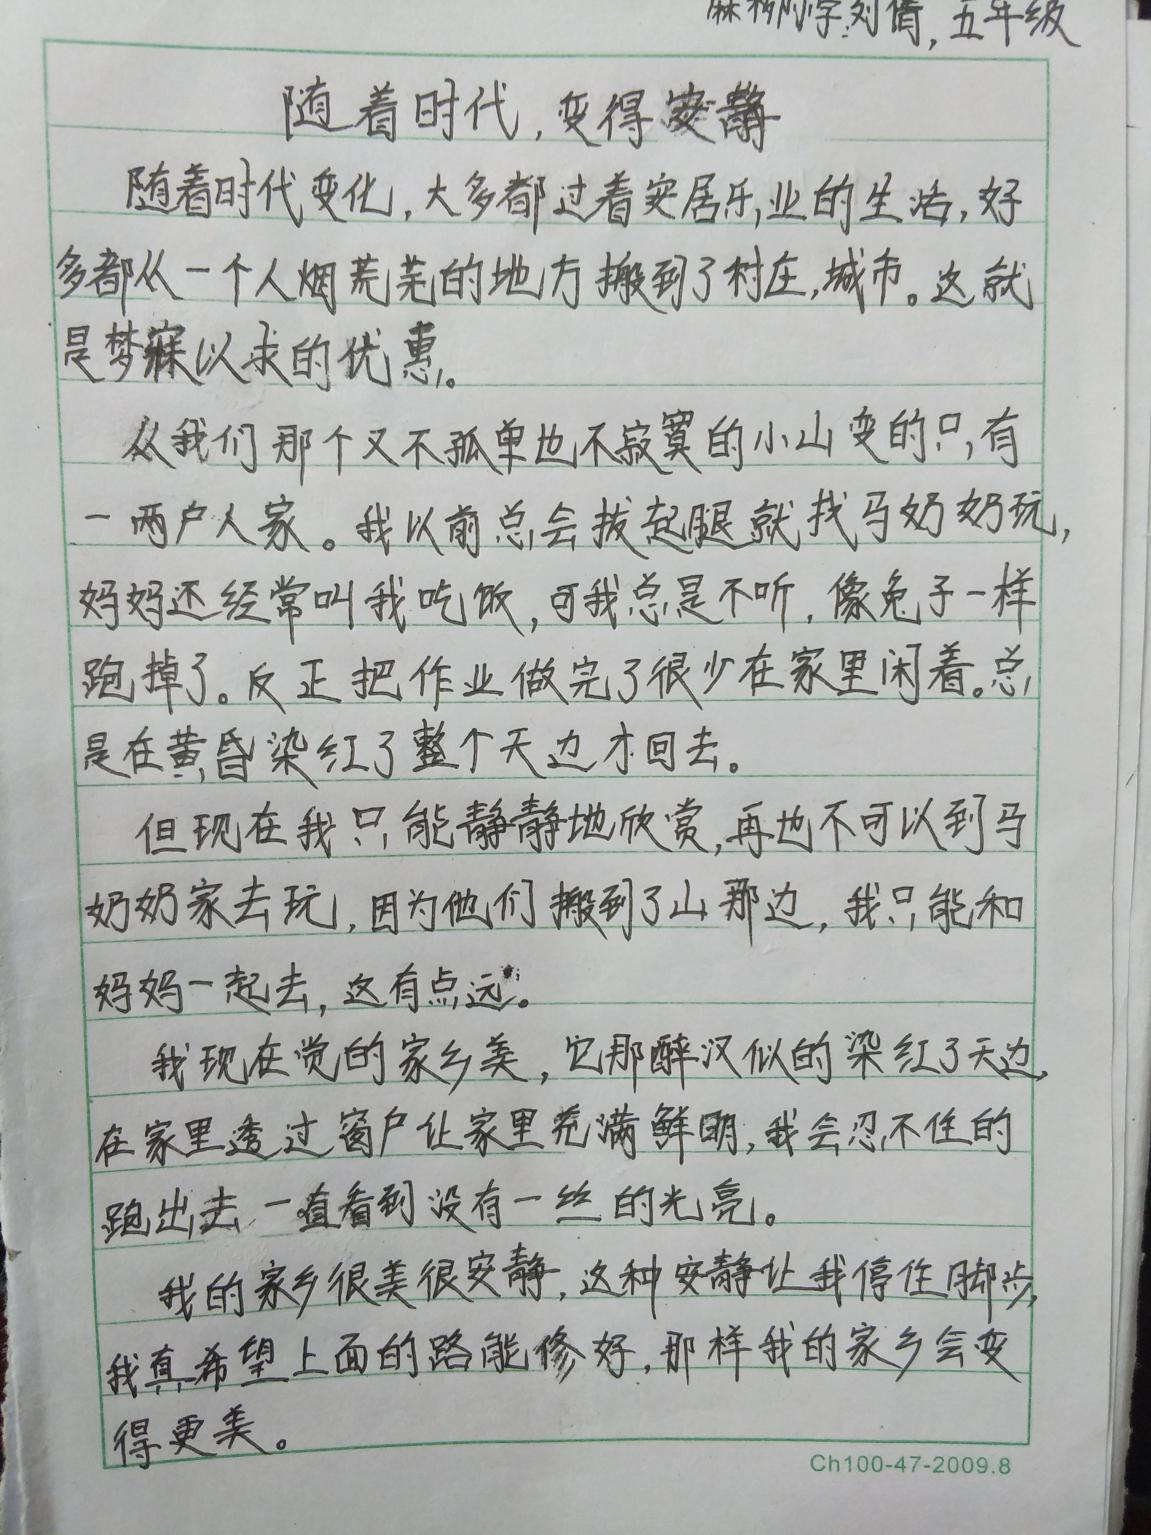 麻柳小学刘倩,五年级
随着时代,变得安静
随着时代变化,大多都过着安居乐业的生活,好
多都从一个人烟荒芜的地方搬到了村庄,城市。这就
是梦寐以求的优惠。
从我们那个又不孤单也不寂寞的小山变的只有
一两户人家。我以前总会拔起腿就找马奶奶玩,
妈妈还经常叫我吃饭,可我总是不听,像兔子一样
跑掉了。反正把作业做完了很少在家里闲着。总
是在黄昏染红了整个天边才回去。
但现在我只能静静地欣赏,再也不可以到马
奶奶家去玩,因为他们搬到了山那边,我只能和
妈妈一起去,这有点远。
我现在觉的家乡美,它那醉汉似的染红了天边,
在家里透过窗户让家里充满鲜明,我会忍不住的
跑出去一直看到没有一丝的光亮。
我的家乡很美很安静,这种安静让我停住脚步,
我真希望上面的路能修好,那样我的家乡会变
得更美。
Ch100-47-2009.8